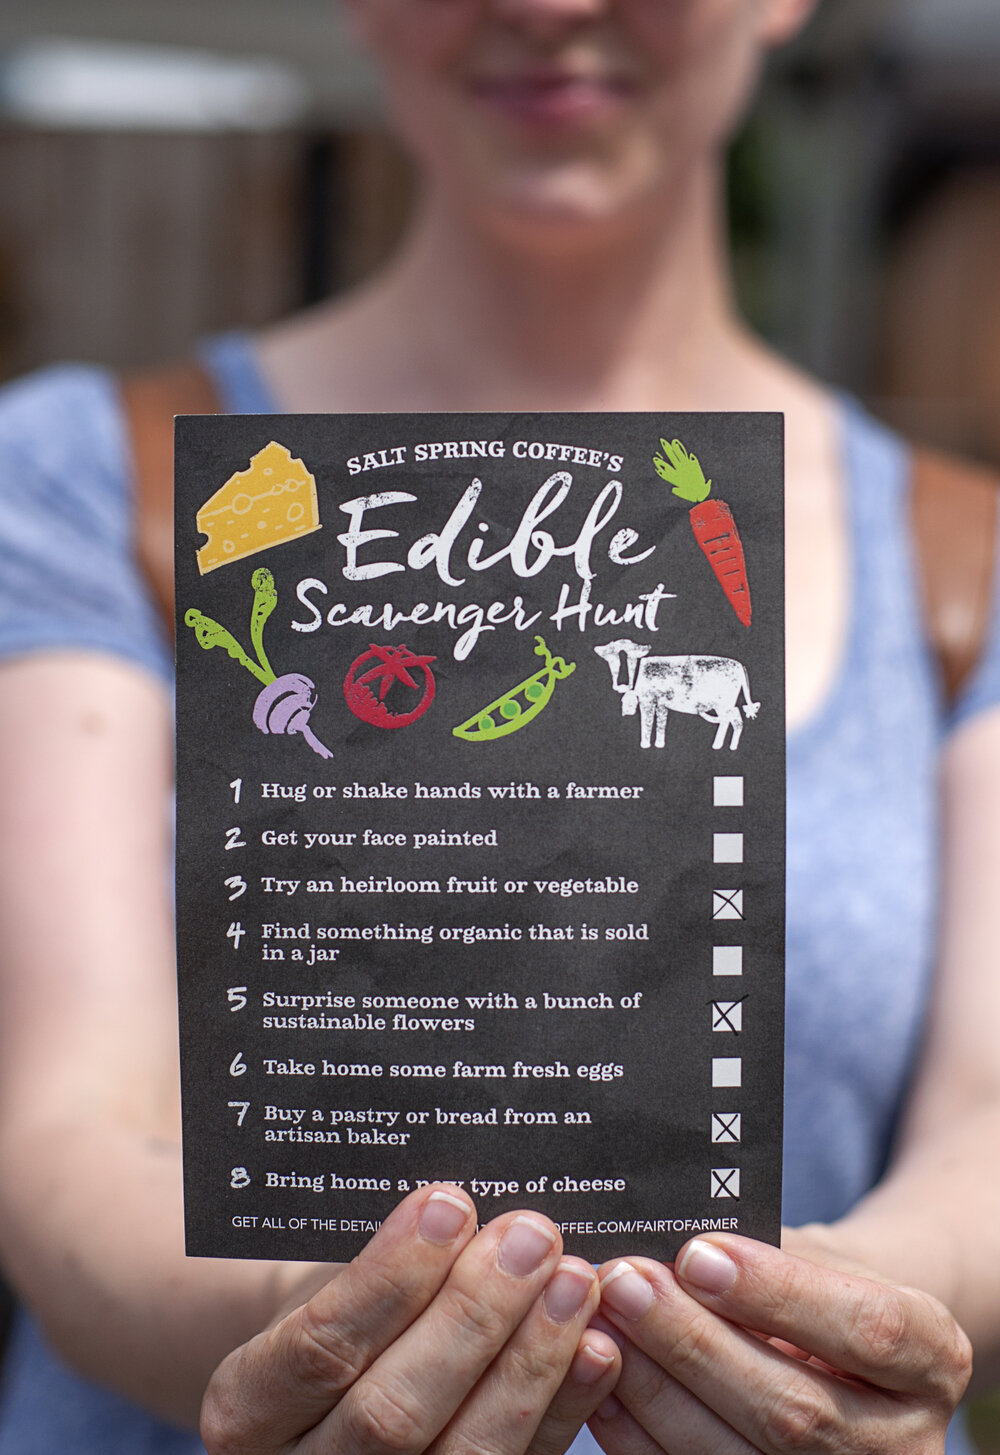 SALT SPRING COFFEE'S
Edible
Scavenger Hunt
1 Hug or shake hands with a farmer
2 Get your face painted
3 Try an heirloom fruit or vegetable
4 Find something organic that is sold
in a jar
5 Surprise someone with a bunch of
sustainable flowers
6 Take home some farm fresh eggs
7 Buy a pastry or bread from an
artisan baker
8 Bring home a new type of cheese
GET ALL OF THE OFFEE.COM/FAIRTOFARMER